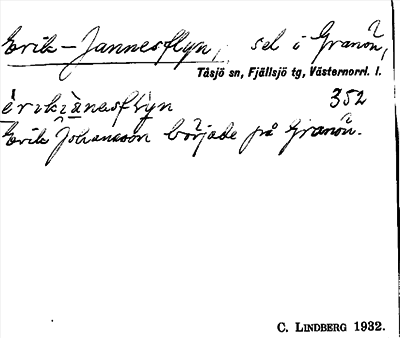 Erik-Jannesflyn, sel i Granön,
Tåsjö sn, Fjällsjö tg, Västernorrl. l.
352
Erik Johansson började på Granön.
C. LINDBERG 1932.